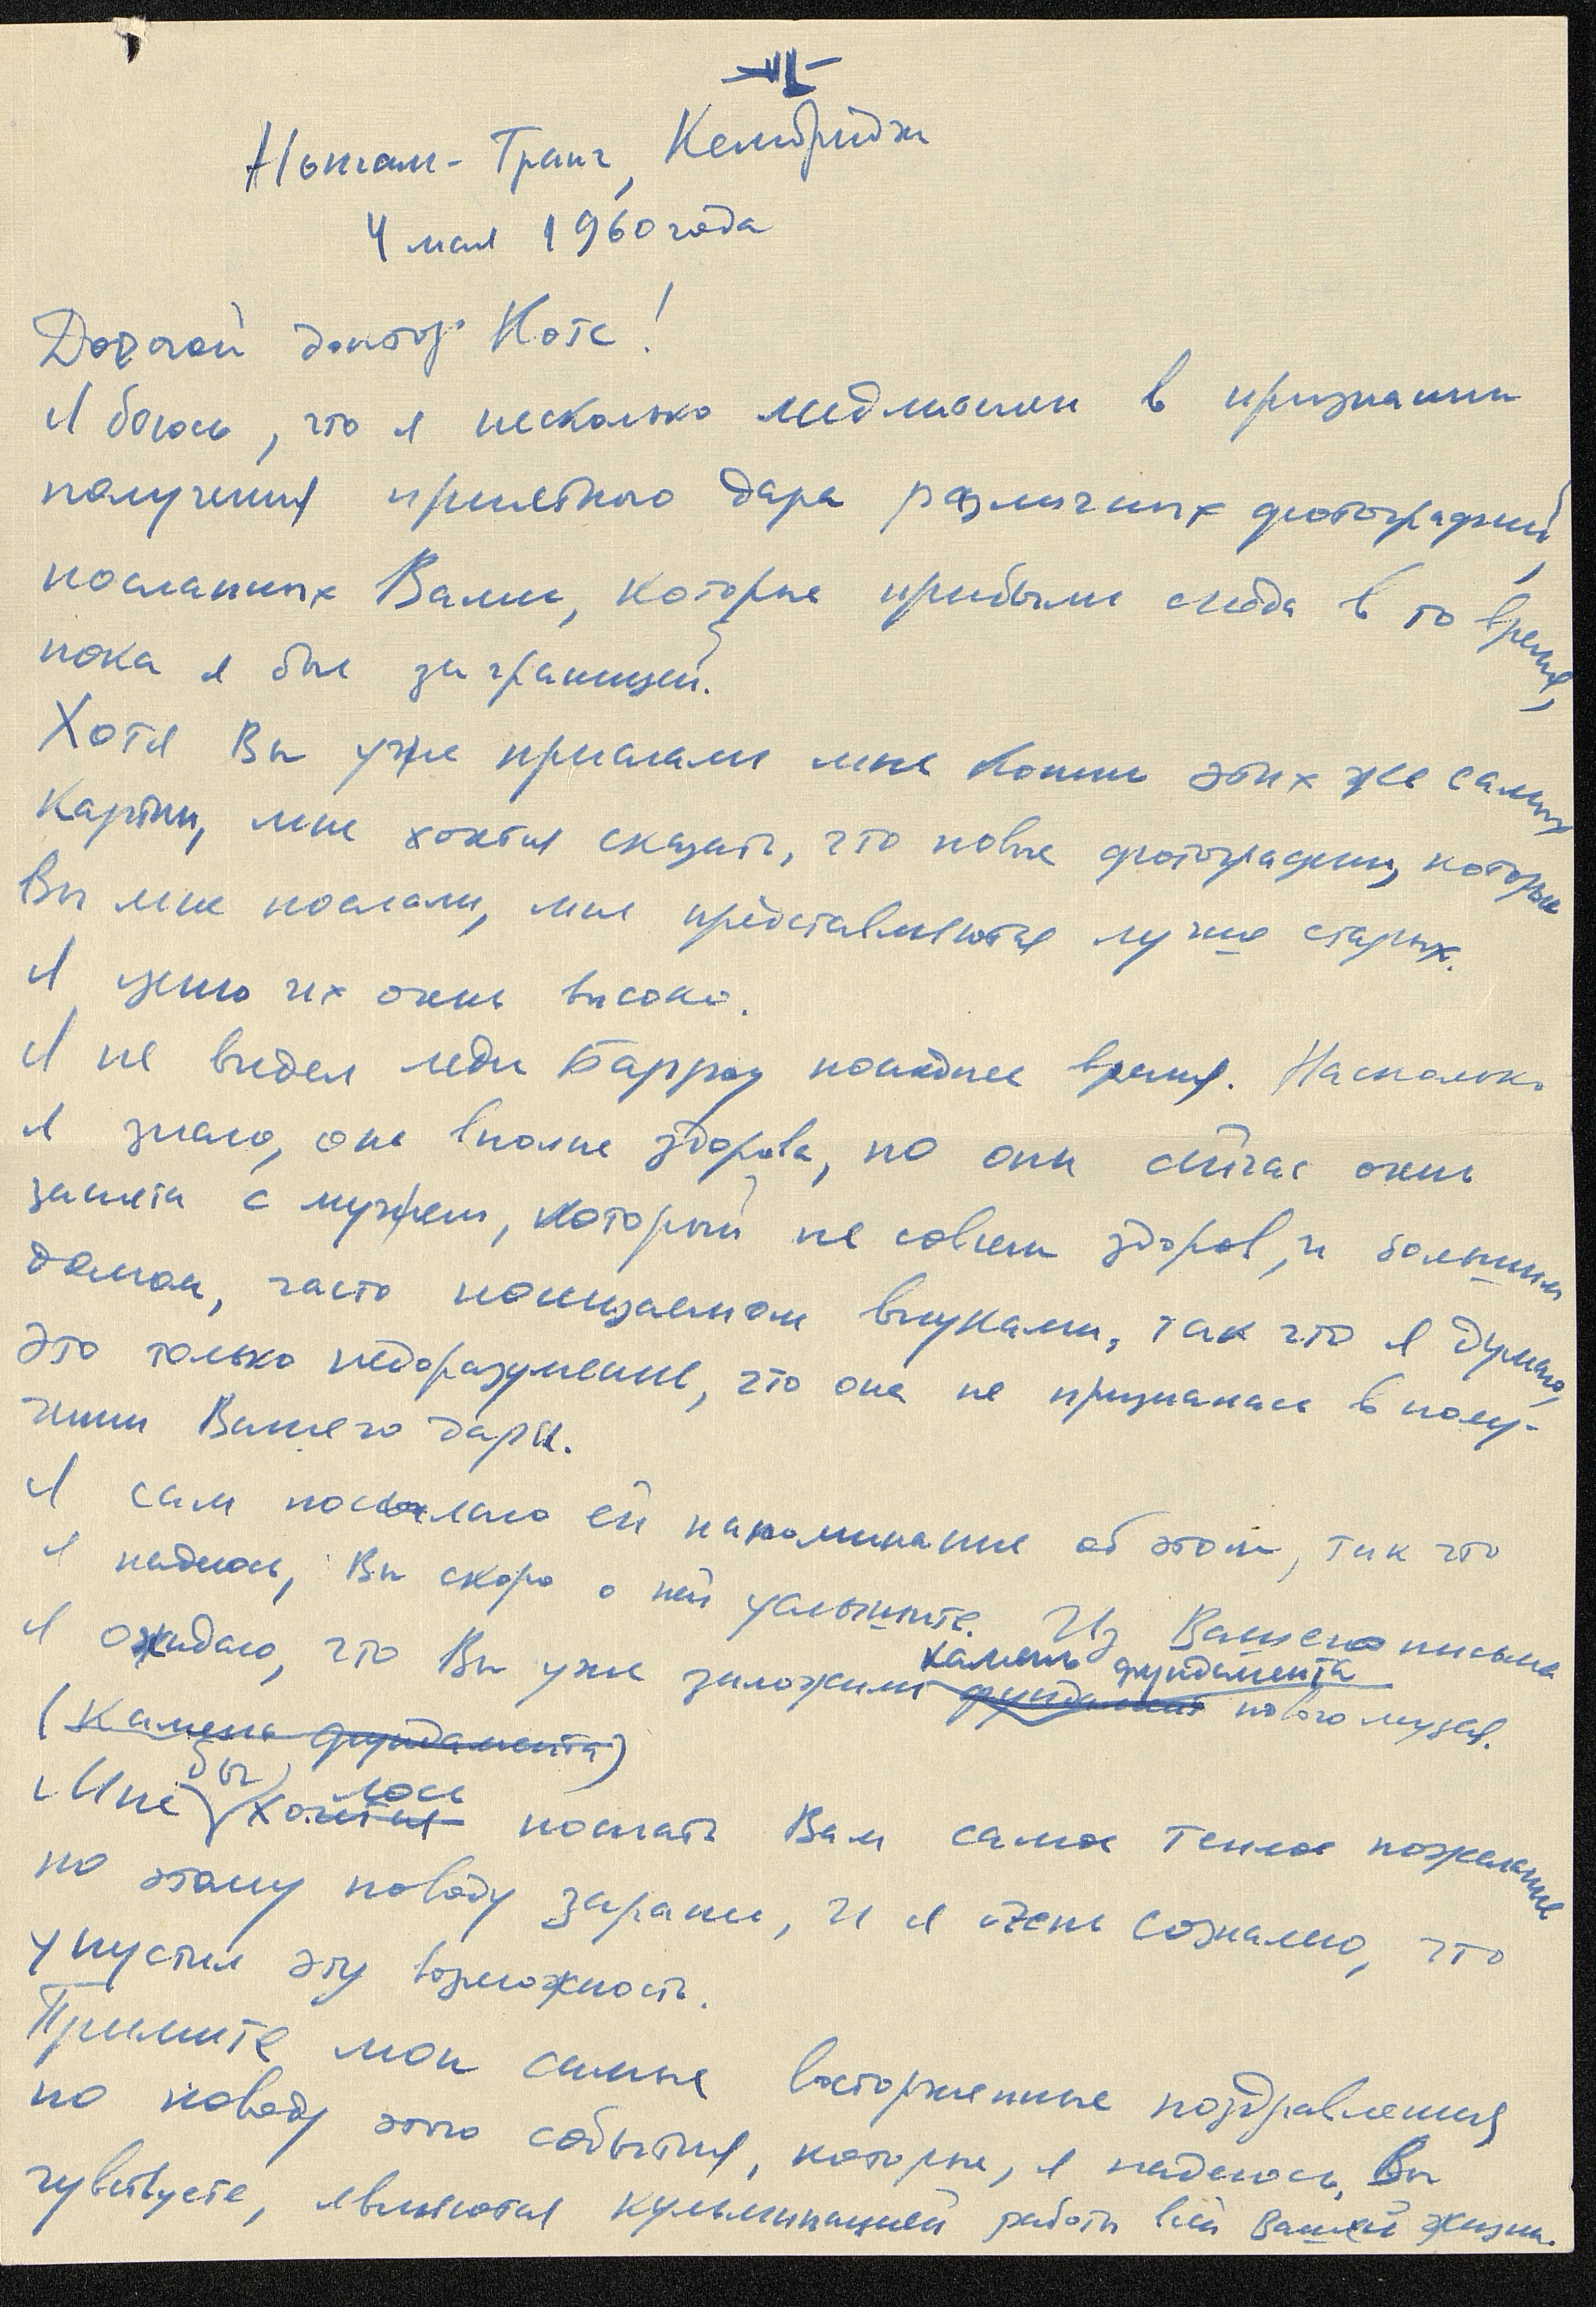 Ньюгам-Гранг, Кембридж
4 мая 1960 года
Дорогой доктор Котс!
Я боюсь, что я несколько медлителен в признании
получения приятного дара различных фотографий,
посланных Вами, которые прибыли сюда в то время,
пока я был за границей.
Хотя Вы уже прислали мне копии этих же самых
картин, мне хочется сказать, что новые фотографии, которые
Вы мне послали, мне представляются лучше старых.
Я ценю их очень высоко.
Я не видел леди Барроу последнее время. Насколько
я знаю, она вполне здорова, но она сейчас очень
занята с мужем, который не совсем здоров, и большим
домом, часто посещаемом внуками, так что я думаю,
это только недоразумение, что она не призналась в полу-
чении Вашего дара.
Я сам посылаю ей напоминание об этом, так что
я надеюсь, Вы скоро о ней услышите. Из Вашего письма
я ожидаю, что Вы уже заложили камень фундамента
фундамент нового музея.
(камень фундамента)
Мне бы хочется лось послать Вам самое теплое пожелание
по этому поводу заранее, и я очень сожалею, что
упустил эту возможность.
Примите мои самые восторженные поздравления
по поводу этого события, которые, я надеюсь, Вы
чувствуете, являются кульминацией работы всей Вашей жизни.